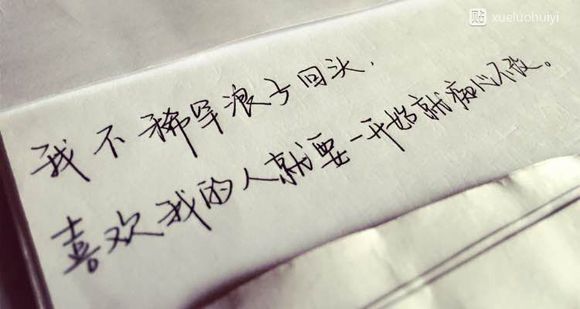 贴 xueluohuiyi
我不稀罕浪子回头，
喜欢我的人就要一开始就痴心不改。